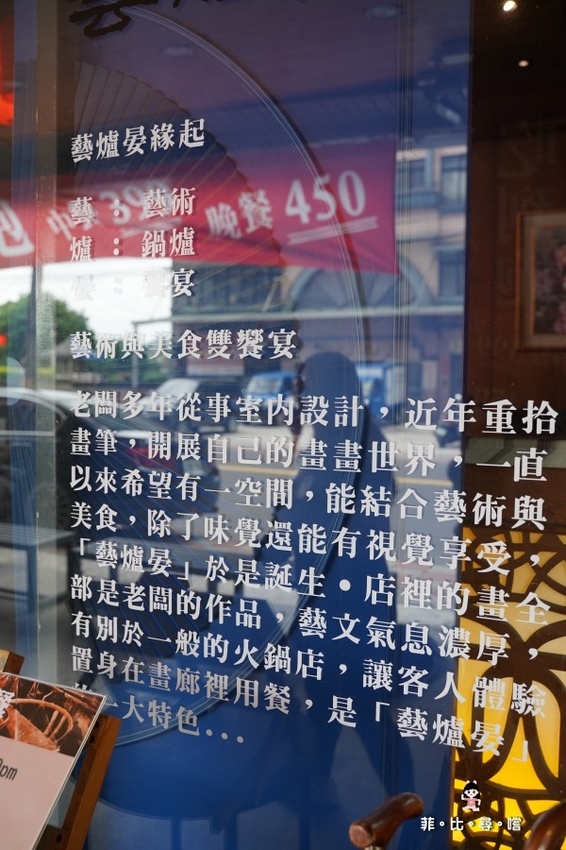 藝爐晏緣起
藝：藝術
爐：鍋爐
：饗宴
晚餐 450
藝術與美食雙饗宴
老闆多年從事室內設計，近年重拾
畫筆，開展自己的畫畫世界，一直
以來希望有一空間，能結合藝術與
美食，除了味覺還能有視覺享受，
「藝爐晏」於是誕生。店裡的畫全
部是老闆的作品，藝文氣息濃厚，
有別於一般的火鍋店，讓客人體驗
置身在畫廊裡用餐，是「藝爐晏」
一大特色...
菲。比。尋。嚐